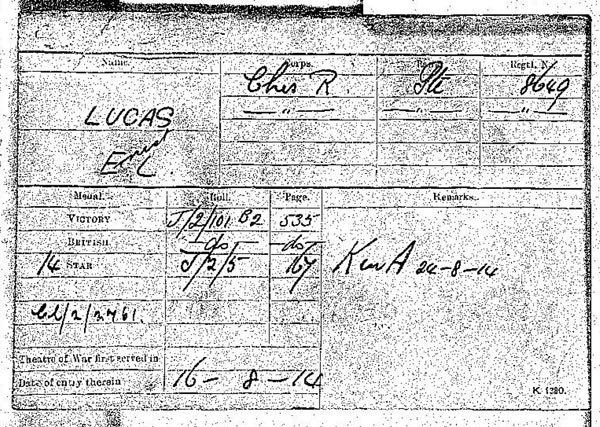 Name. Corps. Rank. Regtl. No.
Ches R. Pte 8649
— " — — " — — " —
LUCAS
Ernest
Medal. Roll. Page. Remarks.
VICTORY J/2/101 B2 535
BRITISH — do — — do —
14 STAR J/2/5 167 K in A 24-8-14
Cl/2/2761.
Theatre of War first served in
Date of entry therein 16 - 8 - 14
K. 1380.